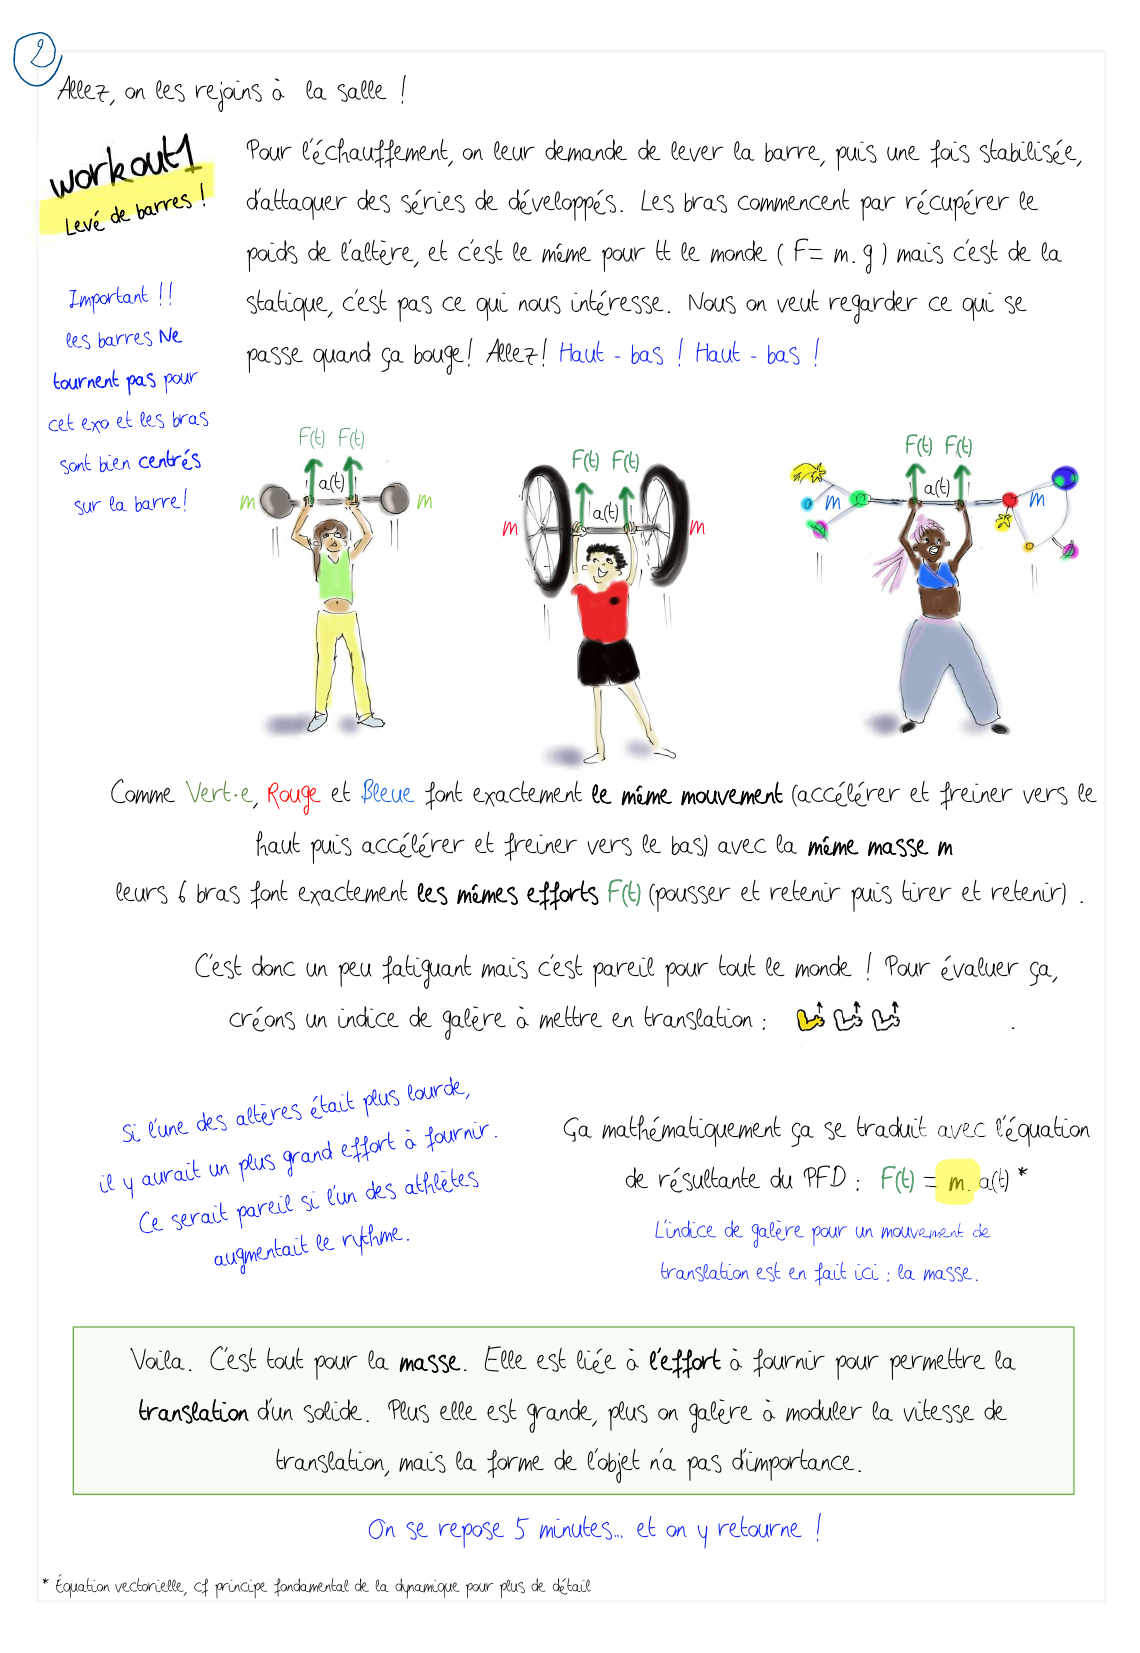 2
Allez, on les rejoins à la salle !
workout1
Levé de barres !
Pour l'échauffement, on leur demande de lever la barre, puis une fois stabilisée,
d'attaquer des séries de développés. Les bras commencent par récupérer le
poids de l'altère, et c'est le même pour tt le monde ( F= m. g ) mais c'est de la
statique, c'est pas ce qui nous intéresse. Nous on veut regarder ce qui se
passe quand ça bouge! Allez! Haut - bas ! Haut - bas !
Important !!
les barres Ne
tournent pas pour
cet exo et les bras
sont bien centrés
sur la barre!
F(t) F(t)
a(t)
m m
F(t) F(t)
a(t)
m m
F(t) F(t)
a(t)
m m
Comme Vert·e, Rouge et Bleue font exactement le même mouvement (accélérer et freiner vers le
haut puis accélérer et freiner vers le bas) avec la même masse m
leurs 6 bras font exactement les mêmes efforts F(t) (pousser et retenir puis tirer et retenir) .
C'est donc un peu fatiguant mais c'est pareil pour tout le monde ! Pour évaluer ça,
créons un indice de galère à mettre en translation : .
Si l'une des altères était plus lourde,
il y aurait un plus grand effort à fournir.
Ce serait pareil si l'un des athlètes
augmentait le rythme.
Ça mathématiquement ça se traduit avec l'équation
de résultante du PFD : F(t) = m. a(t) *
L'indice de galère pour un mouvement de
translation est en fait ici : la masse.
Voila. C'est tout pour la masse. Elle est liée à l'effort à fournir pour permettre la
translation d'un solide. Plus elle est grande, plus on galère à moduler la vitesse de
translation, mais la forme de l'objet n'a pas d'importance.
On se repose 5 minutes... et on y retourne !
* Équation vectorielle, cf principe fondamental de la dynamique pour plus de détail